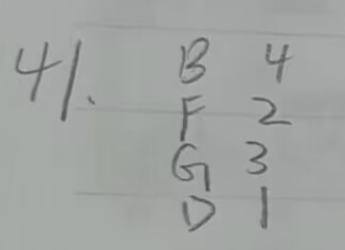 41. B 4
F 2
G 3
D 1